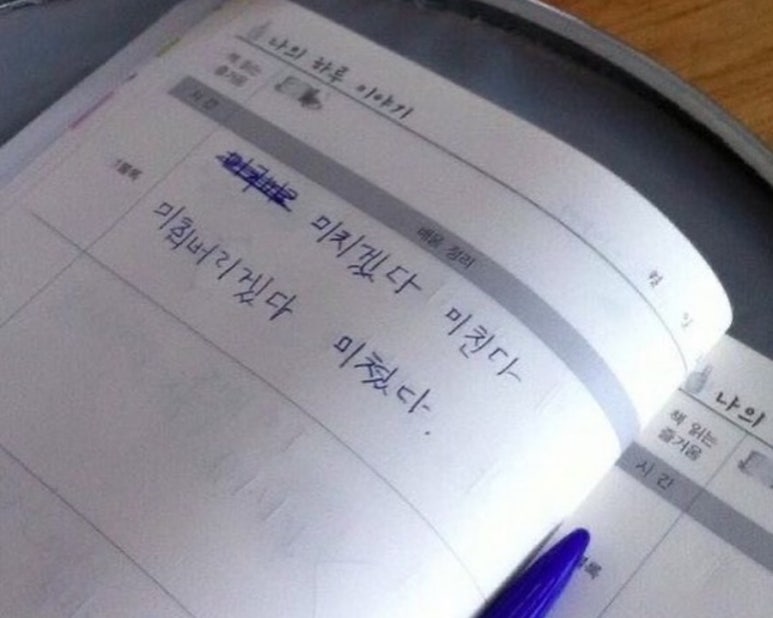 나의 하루 이야기
책 읽는
즐거움
월 일
시간 배움 정리
1블록
미치겠다 미친다
미춰버리겠다
미쳤다.
나의
책 읽는
즐거움
시간
블록